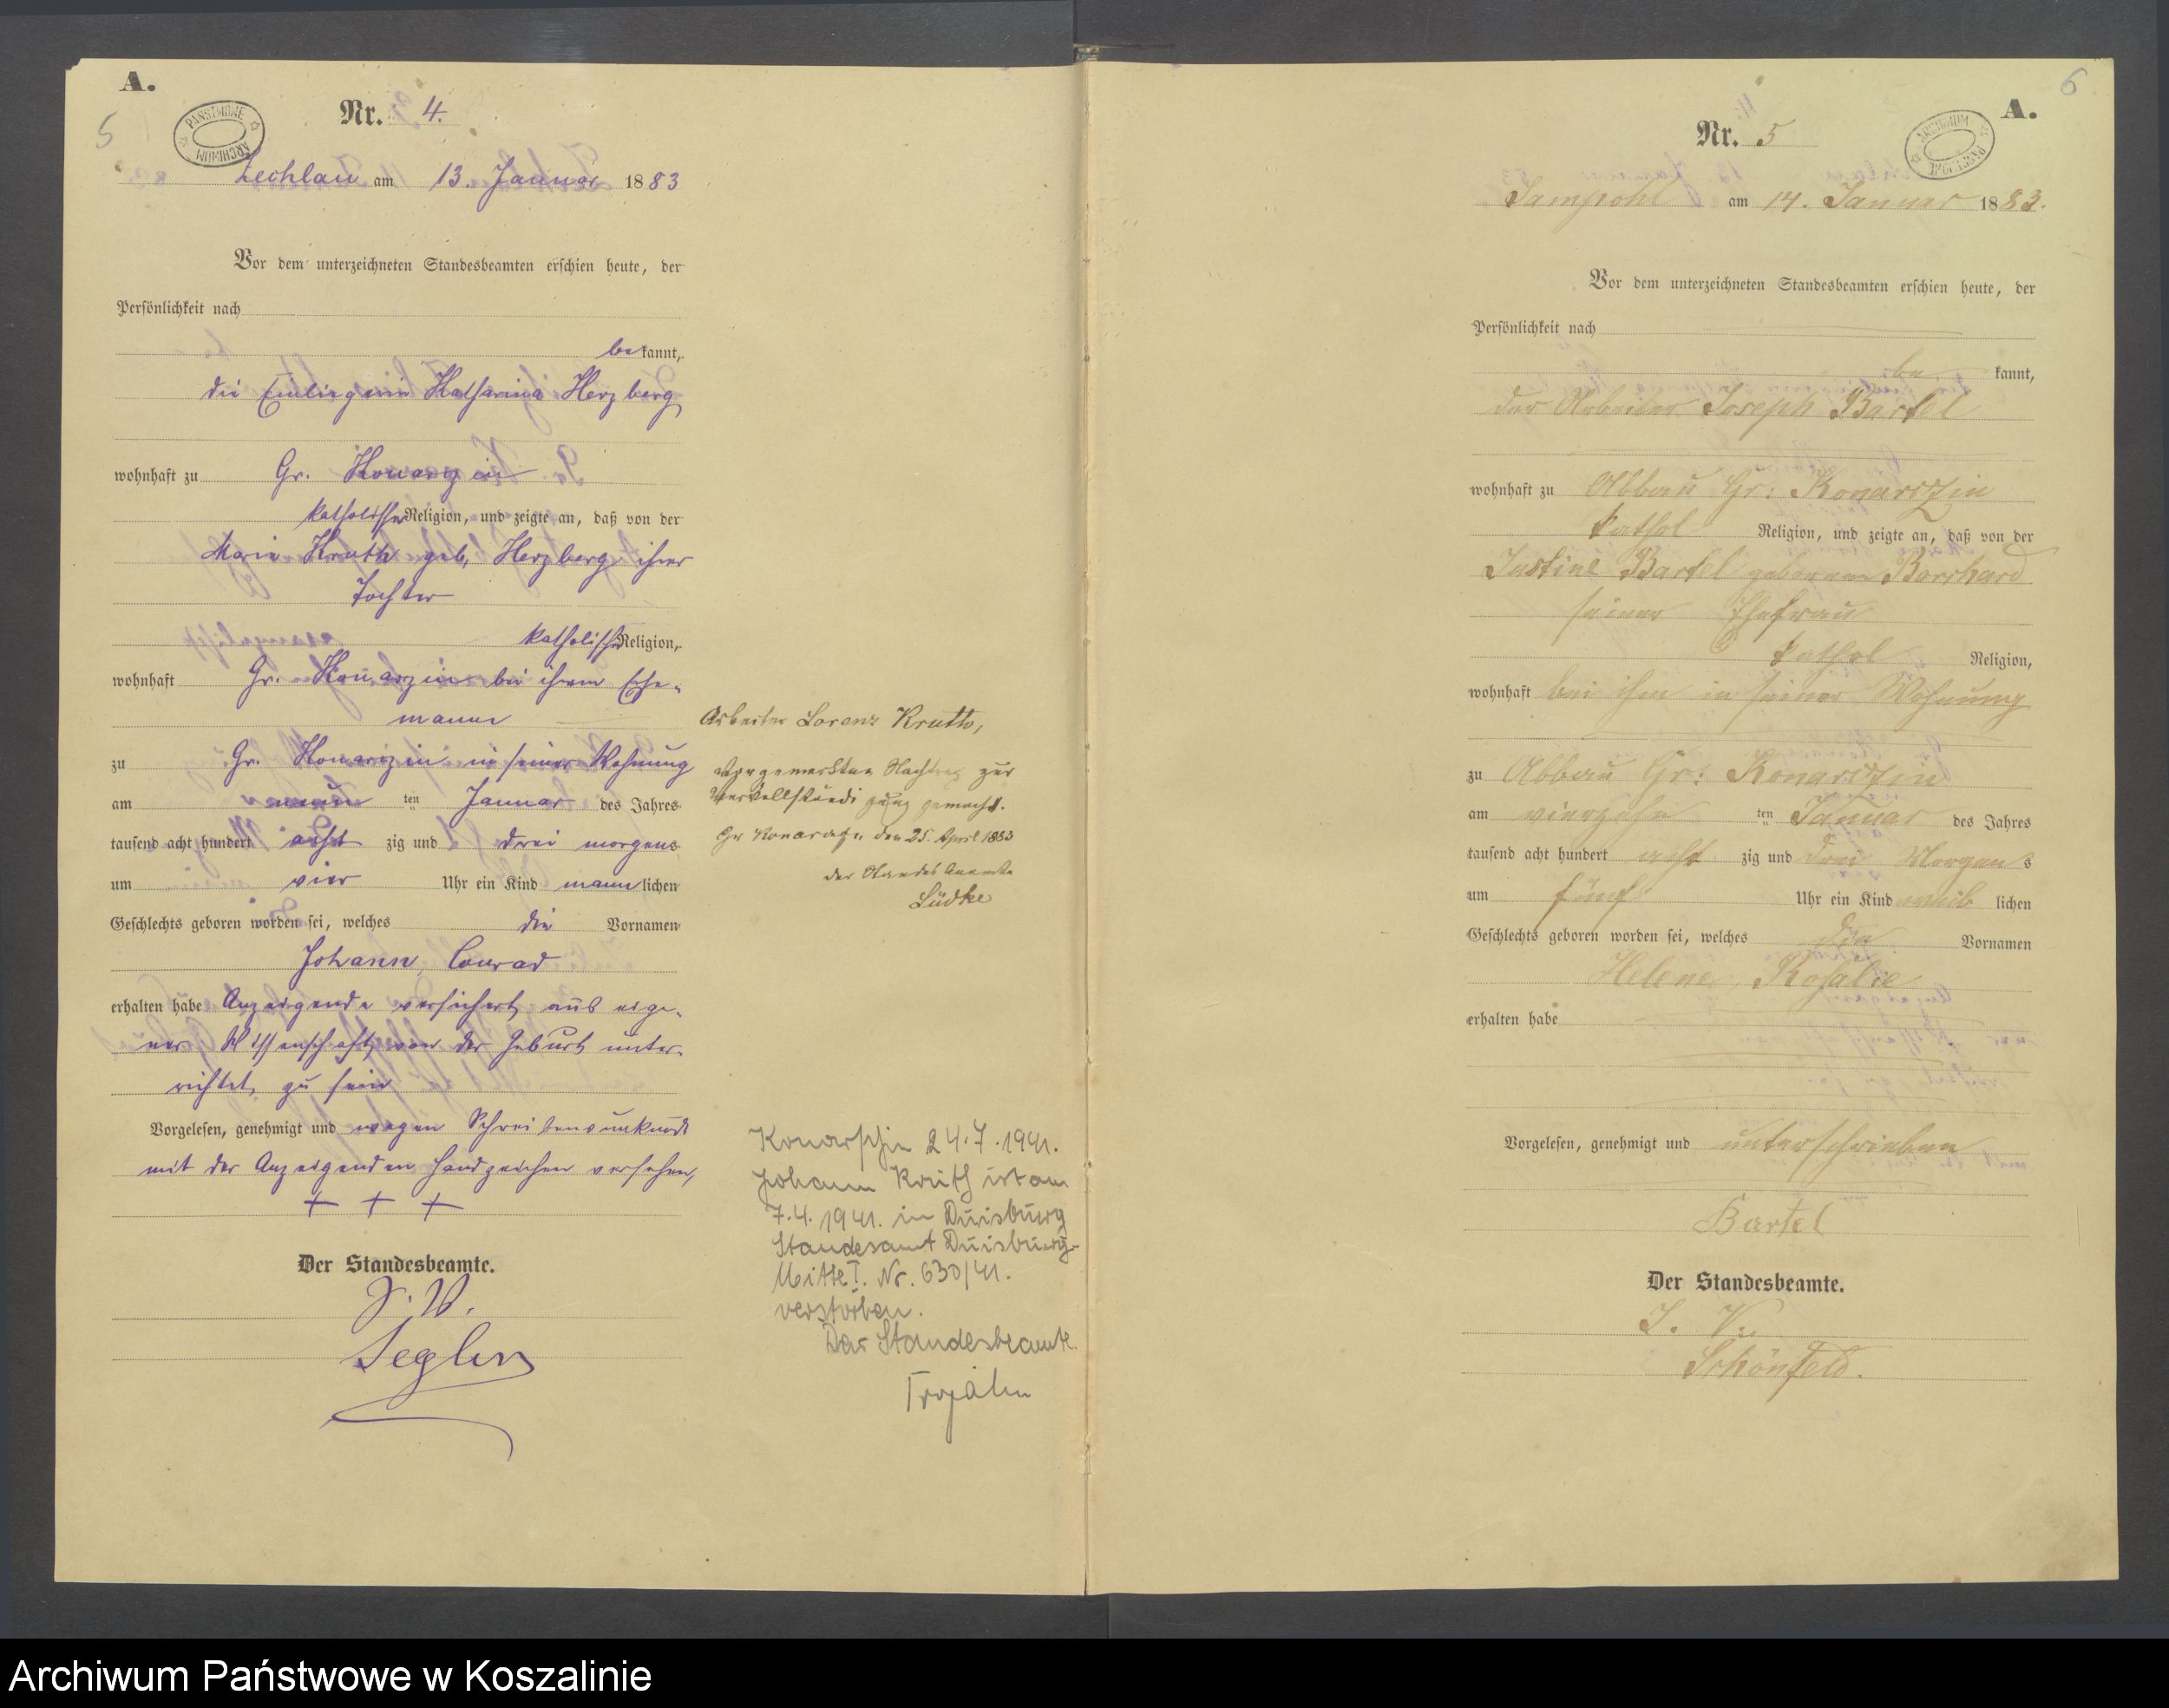 A.
5
PAŃSTWOWE ARCHIWUM
Nr. 4.
Zechlau am 13. Januar 1883
Vor dem unterzeichneten Standesbeamten erschien heute, der
Persönlichkeit nach
bekannt,
die Einliegerin Katharina Herzberg
wohnhaft zu Gr. Konarzin
katholischer Religion, und zeigte an, daß von der
Marie Kruth geb. Herzberg ihrer
Tochter
katholischer Religion,
wohnhaft Gr. Konarzin bei ihrem Ehe-
manne
zu Gr. Konarzin in seiner Wohnung
am neun ten Januar des Jahres
tausend acht hundert acht zig und drei morgens
um vier Uhr ein Kind männlichen
Geschlechts geboren worden sei, welches die Vornamen
Johann, Conrad
erhalten habe Anzeigende versichert, aus eige-
ner Wissenschaft von der Geburt unter-
richtet zu sein
Vorgelesen, genehmigt und wegen Schreibensunkunde
mit der Anzeigenden Handzeichen versehen,
+ + +
Der Standesbeamte.
J. V.
Seglin
Arbeiter Lorenz Kruth,
Nachtrag zur
Vervollständigung gemacht.
Gr Konarzin den 25. April 1883
der Standesbeamte
Lüdke
Konarschin 24.7.1941.
Johann Kruth ist am
7.4.1941. in Duisburg
Standesamt Duisburg-
Mitte I. Nr. 630/41.
verstorben.
Der Standesbeamte.
6
A.
ARCHIWUM PAŃSTWOWE
Nr. 5
Sampohl am 14. Januar 1883.
Vor dem unterzeichneten Standesbeamten erschien heute, der
Persönlichkeit nach
be kannt,
der Arbeiter Joseph Bartel
wohnhaft zu Abbau Gr: Konarszin
kathol Religion, und zeigte an, daß von der
Justine Bartel geborenen Borchard
seiner Ehefrau
kathol Religion,
wohnhaft bei ihm in seiner Wohnung
zu Abbau Gr: Konarszin
am vierzehn ten Januar des Jahres
tausend acht hundert acht zig und drei Morgens
um fünf Uhr ein Kind weib lichen
Geschlechts geboren worden sei, welches die Vornamen
Helene, Rosalie
erhalten habe
Vorgelesen, genehmigt und unterschrieben
Bartel
Der Standesbeamte.
J. V.
Schönfeld.
Archiwum Państwowe w Koszalinie